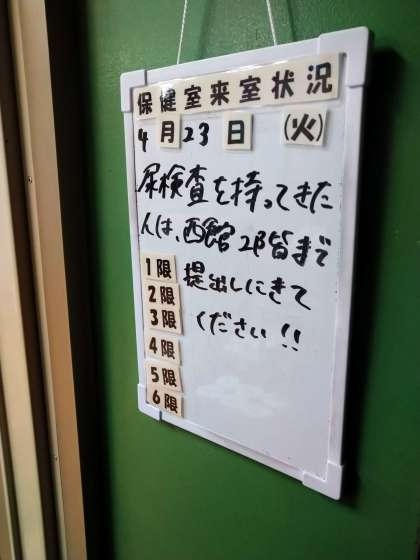 保健室来室状況
4月23日(火)
尿検査を持ってきた
人は、西館2階まで
1限 提出しにきて
2限
3限 ください!!
4限
5限
6限